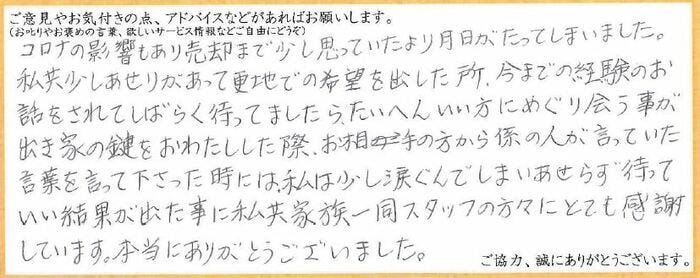 ご意見やお気付きの点、アドバイスなどがあればお願いします。
(お叱りやお褒めの言葉、欲しいサービス情報などご自由にどうぞ)
コロナの影響もあり売却まで少し思っていたより月日がたってしまいました。
私共少しあせりがあって更地での希望を出した所、今までの経験のお
話をされてしばらく待ってましたら、たいへんいい方にめぐり会う事が
出き家の鍵をおわたしした際、お相手の方から係の人が言っていた
言葉を言って下さった時には、私は少し涙ぐんでしまいあせらず待って
いい結果が出た事に私共家族一同スタッフの方々にとても感謝
しています。本当にありがとうございました。
ご協力、誠にありがとうございます。